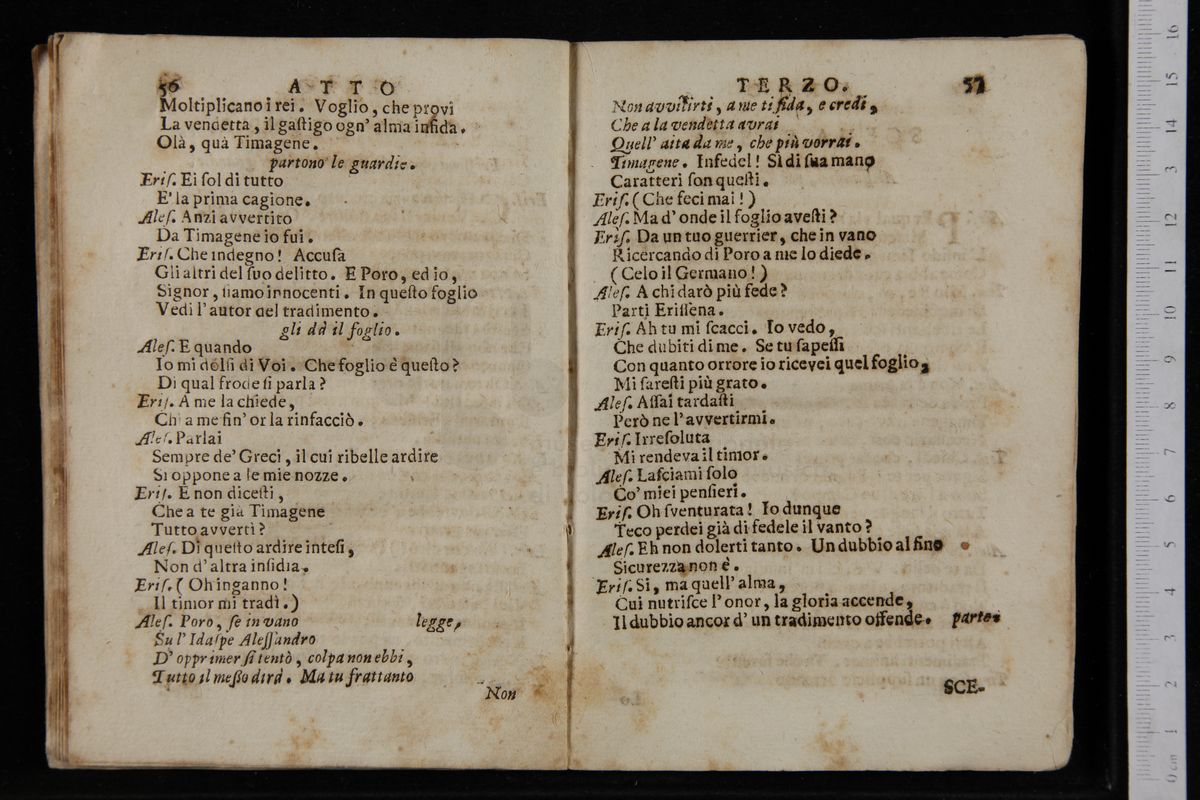 56 ATTO
Moltiplicano i rei. Voglio, che provi
La vendetta, il gaſtigo ogn' alma infida.
Olà, quà Timagene.
partono le guardie.
Eriſ. Ei ſol di tutto
E' la prima cagione.
Aleſ. Anzi avvertito
Da Timagene io fui.
Eriſ. Che indegno! Accuſa
Gli altri del ſuo delitto. E Poro, ed io,
Signor, ſiamo innocenti. In queſto foglio
Vedi l' autor del tradimento.
gli dà il foglio.
Aleſ. E quando
Io mi dolſi di Voi. Che foglio è queſto?
Di qual frode ſi parla?
Eriſ. A me la chiede,
Chi a me ſin' or la rinfacciò.
Aleſ. Parlai
Sempre de' Greci, il cui ribelle ardire
Si oppone a le mie nozze.
Eriſ. E non diceſti,
Che a te già Timagene
Tutto avvertì?
Aleſ. Di queſto ardire inteſi,
Non d' altra inſidia.
Eriſ. (Oh inganno!
Il timor mi tradì.)
Aleſ. Poro, ſe in vano legge,
Su l' Idaſpe Aleſſandro
D' opprimer ſi tentò, colpa non ebbi,
Tutto il meſſo dirà. Ma tu frattanto
Non
TERZO. 57
Non avvilirti, a me ti fida, e credi,
Che a la vendetta avrai
Quell' aita da me, che più vorrai.
Timagene. Infedel! Sì di ſua mano
Caratteri ſon queſti.
Eriſ. (Che feci mai!)
Aleſ. Ma d' onde il foglio aveſti?
Eriſ. Da un tuo guerrier, che in vano
Ricercando di Poro a me lo diede.
(Celo il Germano!)
Aleſ. A chi darò più fede?
Parti Eriſſena.
Eriſ. Ah tu mi ſcacci. Io vedo,
Che dubiti di me. Se tu ſapeſſi
Con quanto orrore io ricevei quel foglio,
Mi ſareſti più grato.
Aleſ. Aſſai tardaſti
Però ne l' avvertirmi.
Eriſ. Irreſoluta
Mi rendeva il timor.
Aleſ. Laſciami ſolo
Co' miei penſieri.
Eriſ. Oh ſventurata! Io dunque
Teco perdei già di fedele il vanto?
Aleſ. Eh non dolerti tanto. Un dubbio al fine
Sicurezza non è.
Eriſ. Sì, ma quell' alma,
Cui nutriſce l' onor, la gloria accende,
Il dubbio ancor d' un tradimento offende. parte.
SCE-